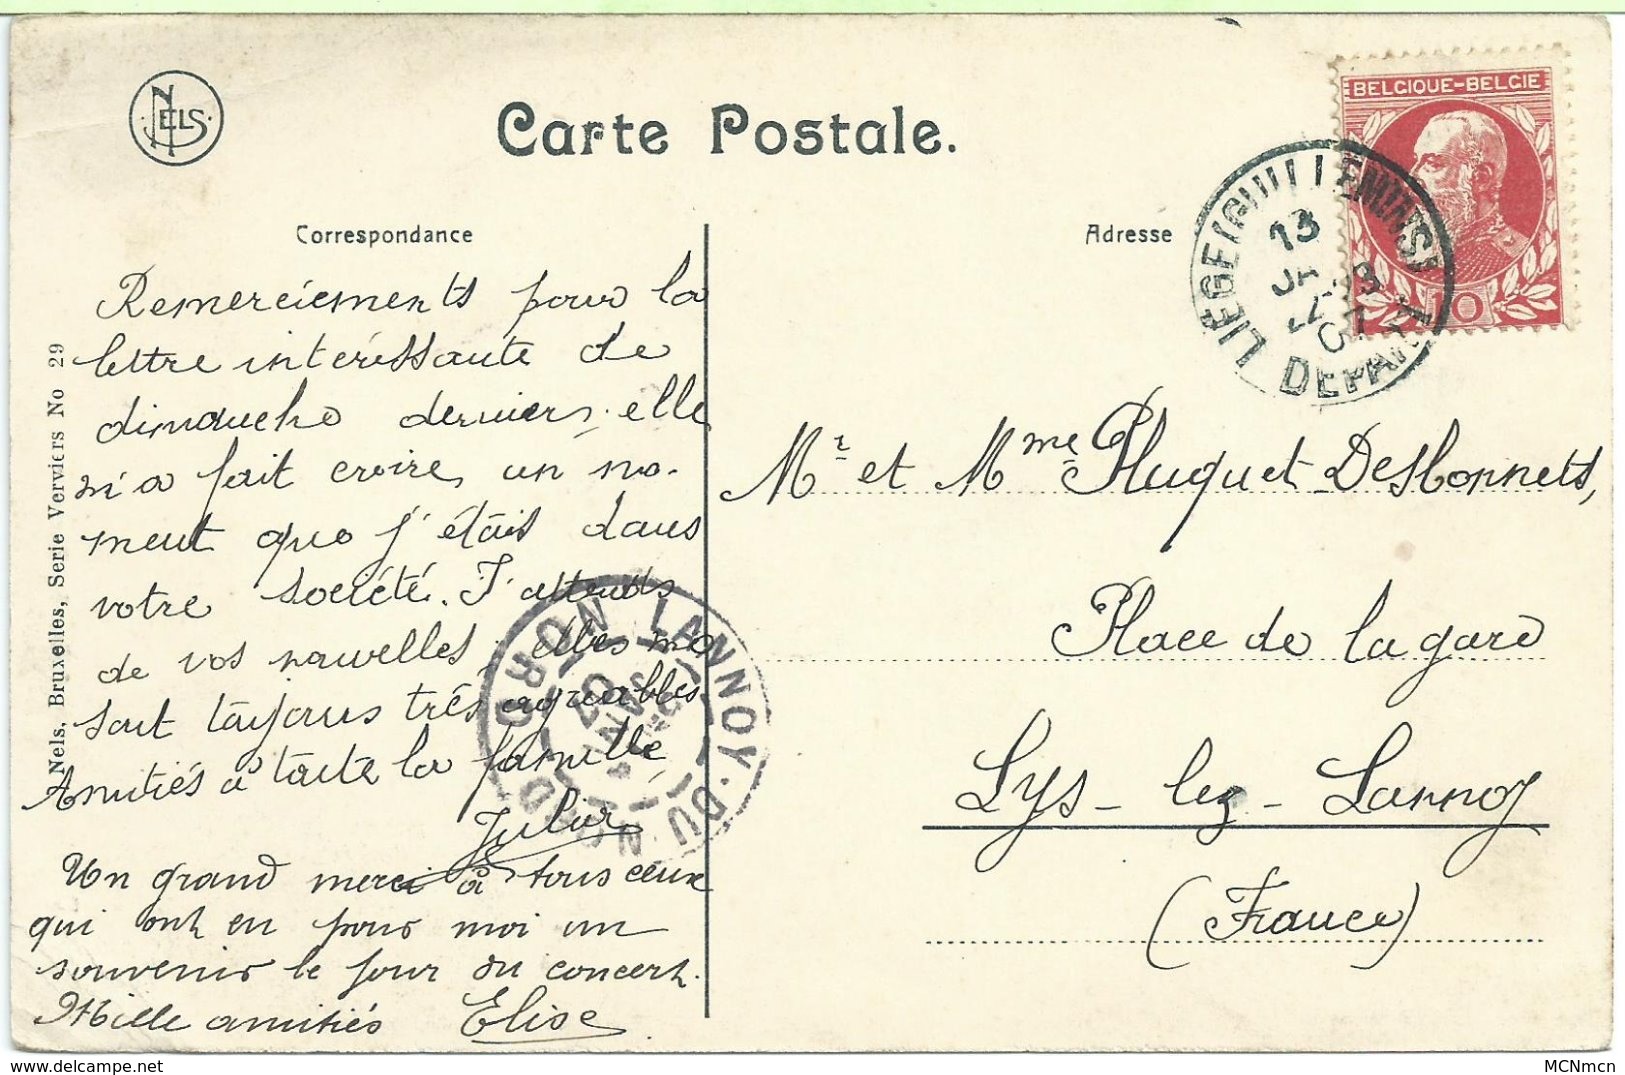 NELS
Carte Postale.
BELGIQUE-BELGIE
10
LIEGE (GUILLEMINS)
13
DEPART
Correspondance
Adresse
Remerciements pour la
lettre intéressante de
dimanche dernier. elle
m'a fait croire, un mo-
ment que j'étais dans
votre société. J'attends
de vos nouvelles, elles me
sont toujours très agréables
Amitiés à toute la famille
Un grand merci à tous ceux
qui ont eu pour moi un
souvenir le jour du concert.
Mille amitiés Elise
Mr et Mme Pluquet-Desbonnets,
Place de la gare
Lys-lez-Lannoy
(France)
LANNOY · DU NORD
Nels, Bruxelles, Serie Verviers No 29
MCNmcn